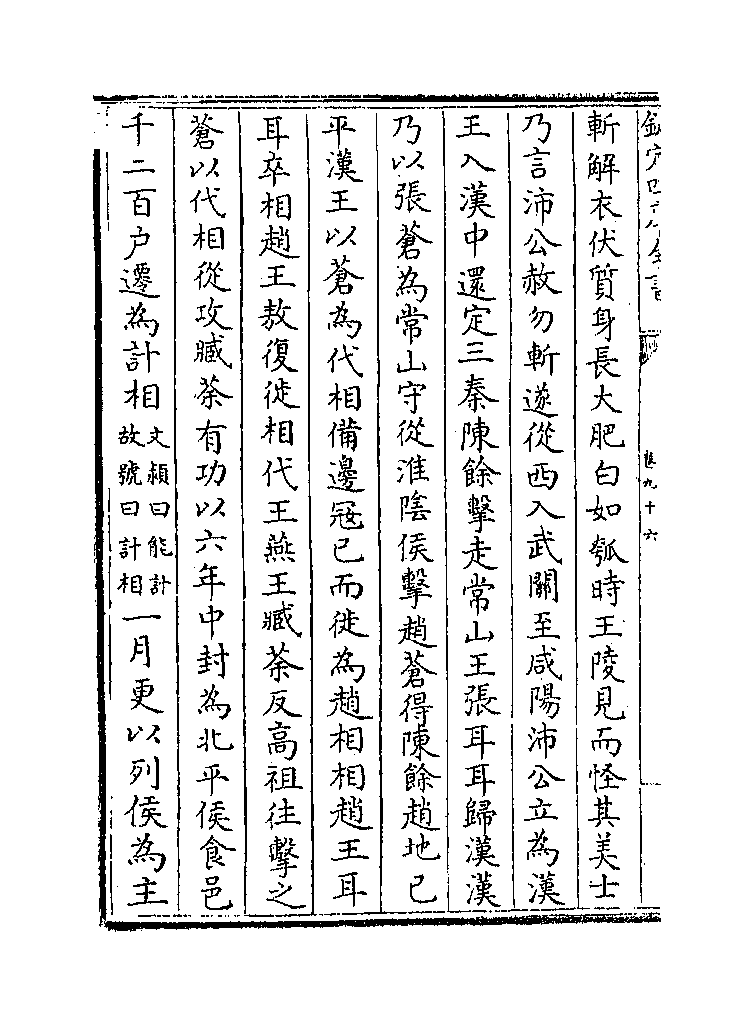 斬解衣伏質身長大肥白如瓠時王陵見而怪其美士
乃言沛公赦勿斬遂從西入武關至咸陽沛公立為漢
王入漢中還定三秦陳餘擊走常山王張耳耳歸漢漢
乃以張蒼為常山守從淮陰侯擊趙蒼得陳餘趙地已
平漢王以蒼為代相備邊冦已而徙為趙相相趙王耳
耳卒相趙王敖復徙相代王燕王臧荼反高祖往擊之
蒼以代相從攻臧荼有功以六年中封為北平侯食邑
千二百户遷為計相文潁曰能計故號曰計相一月更以列侯為主
卷九十六